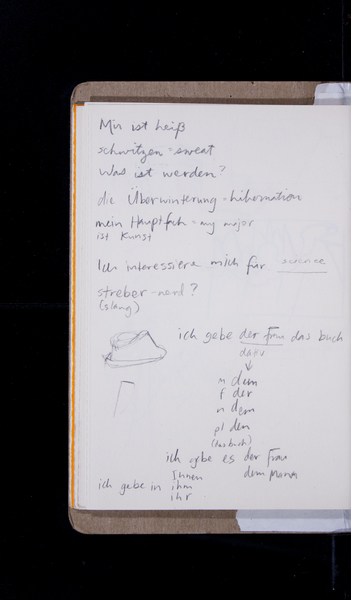 Mir ist heiß
schwitzen = sweat
Was ist werden?
die Überwinterung = hibernation
mein Hauptfach = my major
ist Kunst
Ich interessiere mich für science
streber - nerd?
(slang)
ich gebe der Frau das buch
dativ
m dem
f der
n dem
pl den
(das buch)
ich gebe es der Frau
Ihnen dem Mann
ich gebe in ihm
ihr